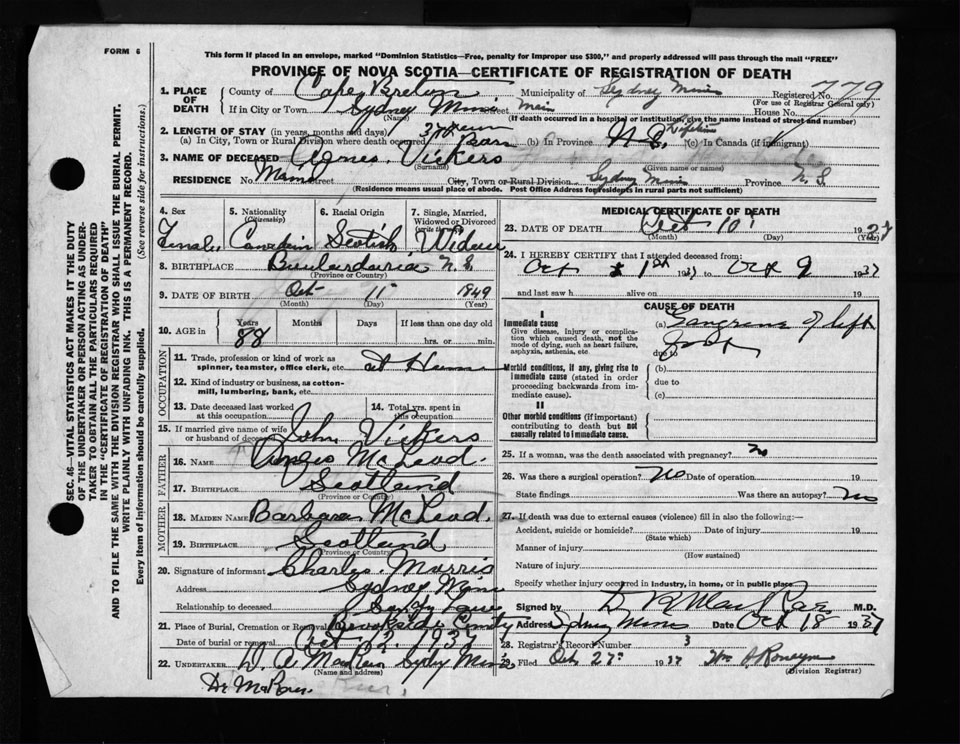 FORM 6
This form if placed in an envelope, marked "Dominion Statistics—Free, penalty for improper use $300," and properly addressed will pass through the mail "FREE"
PROVINCE OF NOVA SCOTIA—CERTIFICATE OF REGISTRATION OF DEATH
SEC. 46—VITAL STATISTICS ACT MAKES IT THE DUTY
OF THE UNDERTAKER OR PERSON ACTING AS UNDER-
TAKER TO OBTAIN ALL THE PARTICULARS REQUIRED
IN THE "CERTIFICATE OF REGISTRATION OF DEATH"
AND TO FILE THE SAME WITH THE DIVISION REGISTRAR WHO SHALL ISSUE THE BURIAL PERMIT.
WRITE PLAINLY WITH UNFADING INK. THIS IS A PERMANENT RECORD.
Every item of information should be carefully supplied. (See reverse side for instructions.)
1. PLACE OF DEATH County of Cape Breton Municipality of Sydney Mines Registered No. 779
(For use of Registrar General only)
If in City or Town Sydney Mines Street Main House No.
(Name)
(If death occurred in a hospital or institution, give the name instead of street and number)
2. LENGTH OF STAY (in years, months and days)
(a) In City, Town or Rural Division where death occurred (b) In Province N.S. Lifetime (c) In Canada (if immigrant)
3. NAME OF DECEASED Agnes Vickers
(Surname) (Given name or names)
RESIDENCE No. Main Street City, Town or Rural Division Sydney Mines Province N.S.
(Residence means usual place of abode. Post Office Address for residents in rural parts not sufficient)
4. Sex Female
5. Nationality (Citizenship) Canadian
6. Racial Origin Scotish
7. Single, Married, Widowed or Divorced (write the word) Widow
8. BIRTHPLACE Boularderie N.S.
(Province or Country)
9. DATE OF BIRTH Oct 11 1849
(Month) (Day) (Year)
10. AGE in Years 88 Months Days If less than one day old hrs. or min.
OCCUPATION
11. Trade, profession or kind of work as spinner, teamster, office clerk, etc. at Home
12. Kind of industry or business, as cotton-mill, lumbering, bank, etc.
13. Date deceased last worked at this occupation
14. Total yrs. spent in this occupation
15. If married give name of wife or husband of deceased John Vickers
FATHER
16. NAME Angus McLeod.
17. BIRTHPLACE Scotland
(Province or Country)
MOTHER
18. MAIDEN NAME Barbara McLeod.
19. BIRTHPLACE Scotland
(Province or Country)
20. Signature of informant Charles Morris
Address Sydney Mines
Relationship to deceased
21. Place of Burial, Cremation or Removal
Date of burial or removal Oct 12. 1937
22. UNDERTAKER Sydney Mines
(Name and address)
MEDICAL CERTIFICATE OF DEATH
23. DATE OF DEATH Oct 10 1937
(Month) (Day) (Year)
24. I HEREBY CERTIFY that I attended deceased from:
Oct 1st 1937 to Oct 9 1937
and last saw h alive on 19
CAUSE OF DEATH
I
Immediate cause
Give disease, injury or complication which caused death, not the mode of dying, such as heart failure, asphyxia, asthenia, etc.
(a) Gangrene of left foot
due to
Morbid conditions, if any, giving rise to immediate cause (stated in order proceeding backwards from immediate cause).
(b)
due to
(c)
II
Other morbid conditions (if important) contributing to death but not causally related to immediate cause.
25. If a woman, was the death associated with pregnancy? no
26. Was there a surgical operation? No Date of operation 19
State findings Was there an autopsy? no
27. If death was due to external causes (violence) fill in also the following:—
Accident, suicide or homicide? Date of injury 19
(State which)
Manner of injury
(How sustained)
Nature of injury
Specify whether injury occurred in industry, in home, or in public place
Signed by M.D.
Address Sydney Mines Date Oct 18 1937
28. Registrar's Record Number 3
Filed Oct 27 1937
(Division Registrar)